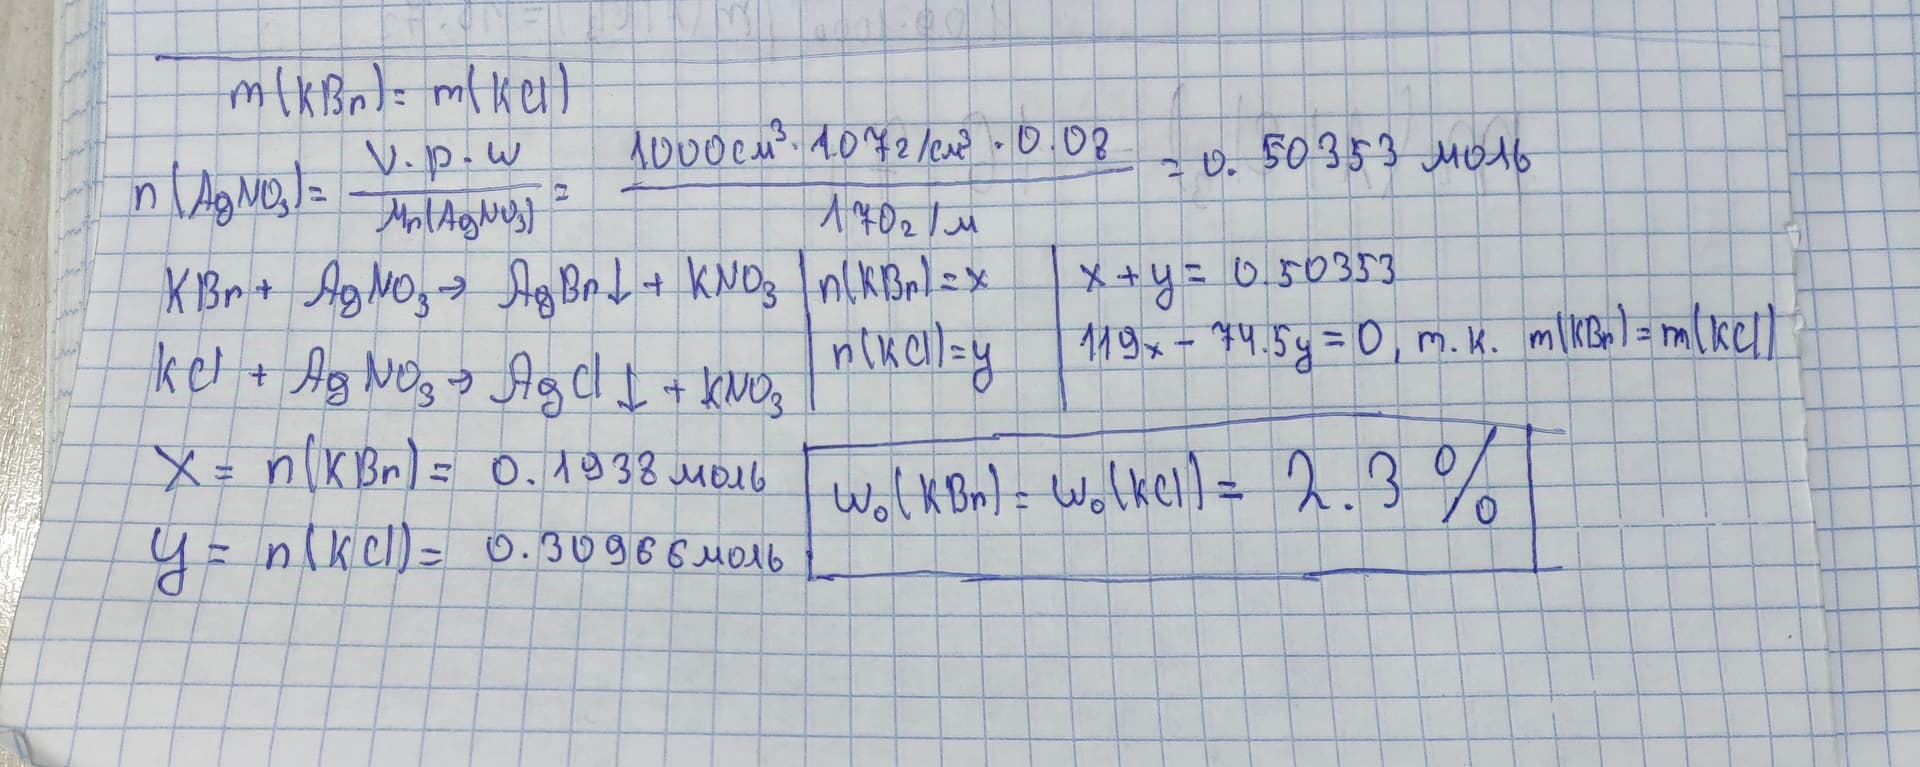 m(KBr) = m(KCl)
n(AgNO₃) = V·ρ·w / Mr(AgNO₃) = 1000см³ · 1.07г/см³ · 0.08 / 170г/м = 0.50353 моль
KBr + AgNO₃ → AgBr↓ + KNO₃ | n(KBr) = x | x + y = 0.50353
KCl + AgNO₃ → AgCl↓ + KNO₃ | n(KCl) = y | 119x - 74.5y = 0, т.к. m(KBr) = m(KCl)
x = n(KBr) = 0.1938 моль
y = n(KCl) = 0.30966 моль
w₀(KBr) = w₀(KCl) = 2.3 %